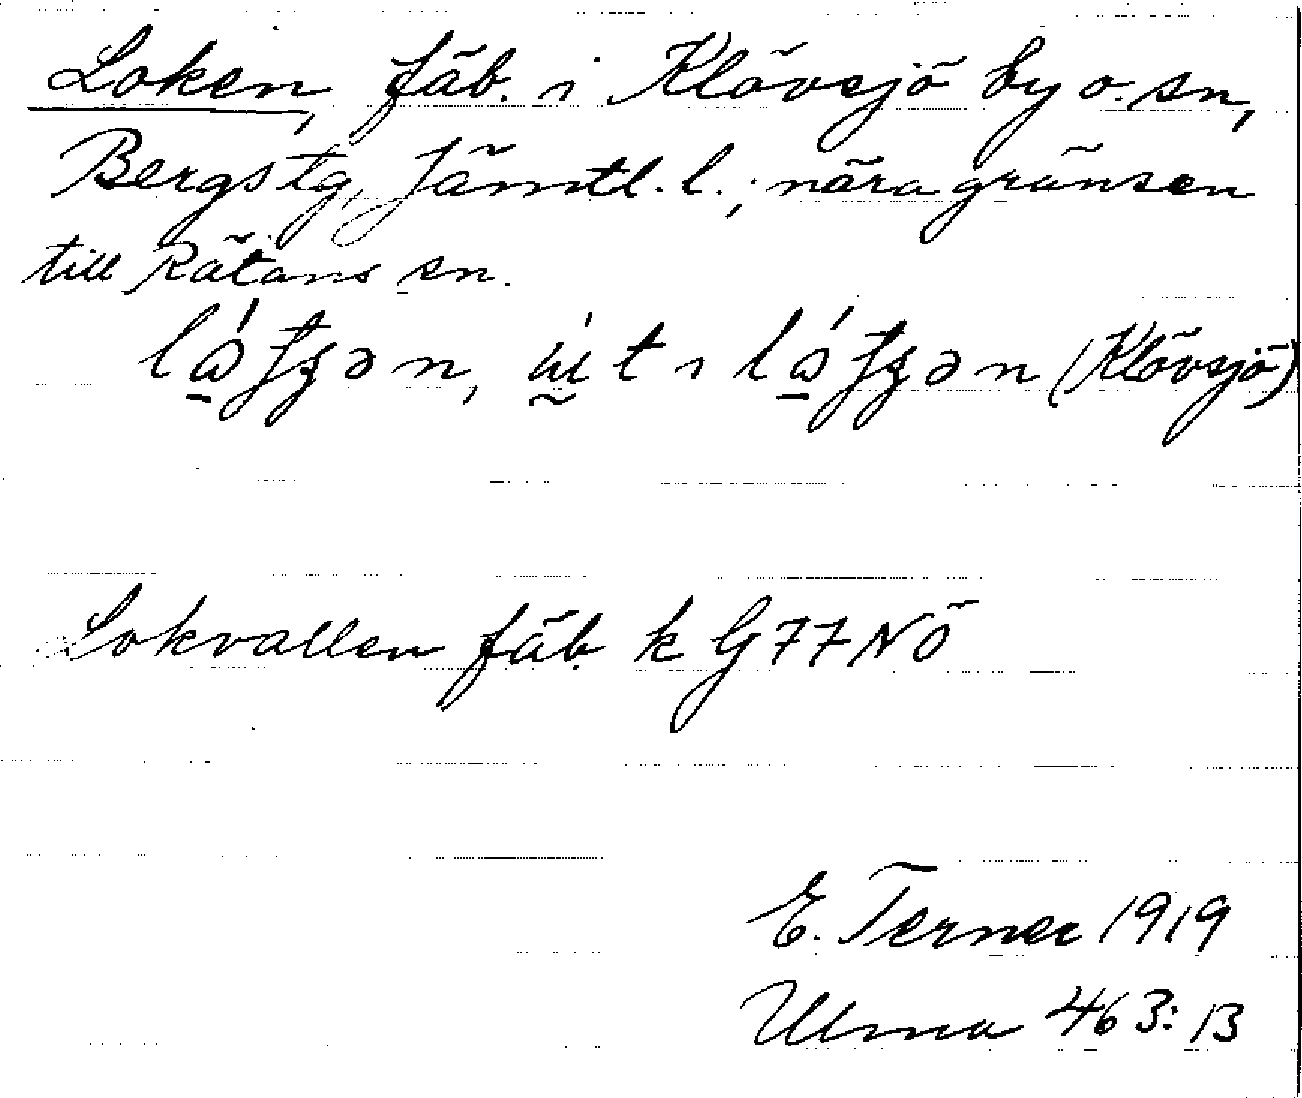 Loken, fäb. i Klövsjö by o. sn,
Bergs tg, Jämtl. l.; nära gränsen
till Rätans sn.
(Klövsjö)
Lokvallen fäb. k G77NÖ
E. Terner 1919
Ulma 463:13